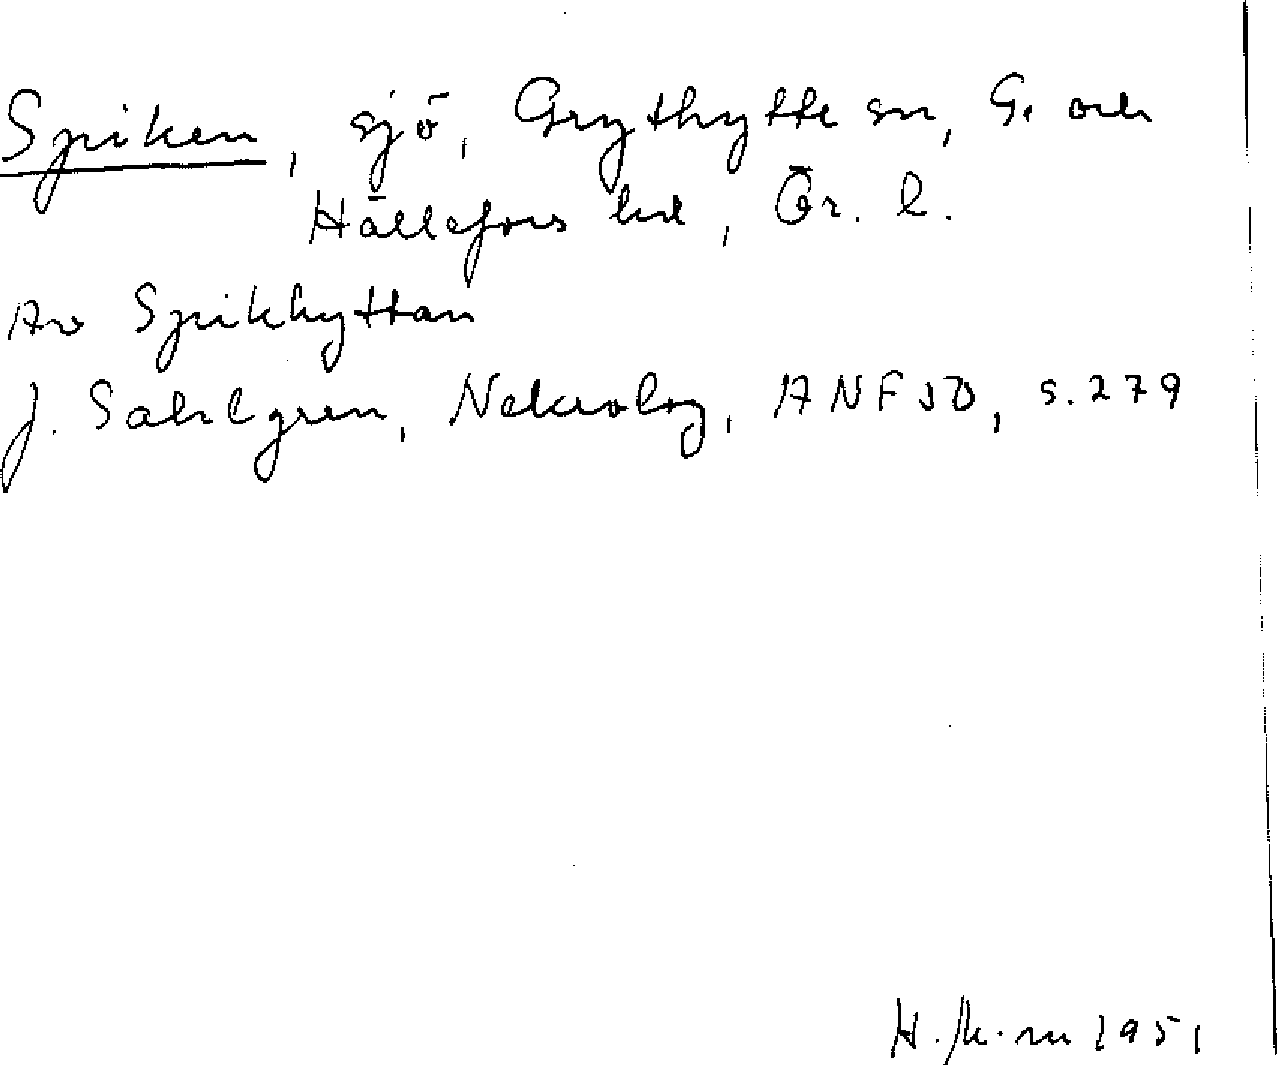 Spiken, sjö, Grythytte sn, G. och
Hällefors hd, Ör. l.
Av Spikhyttan
J. Sahlgren, Nekrolog, ANF 50, s. 279
1951